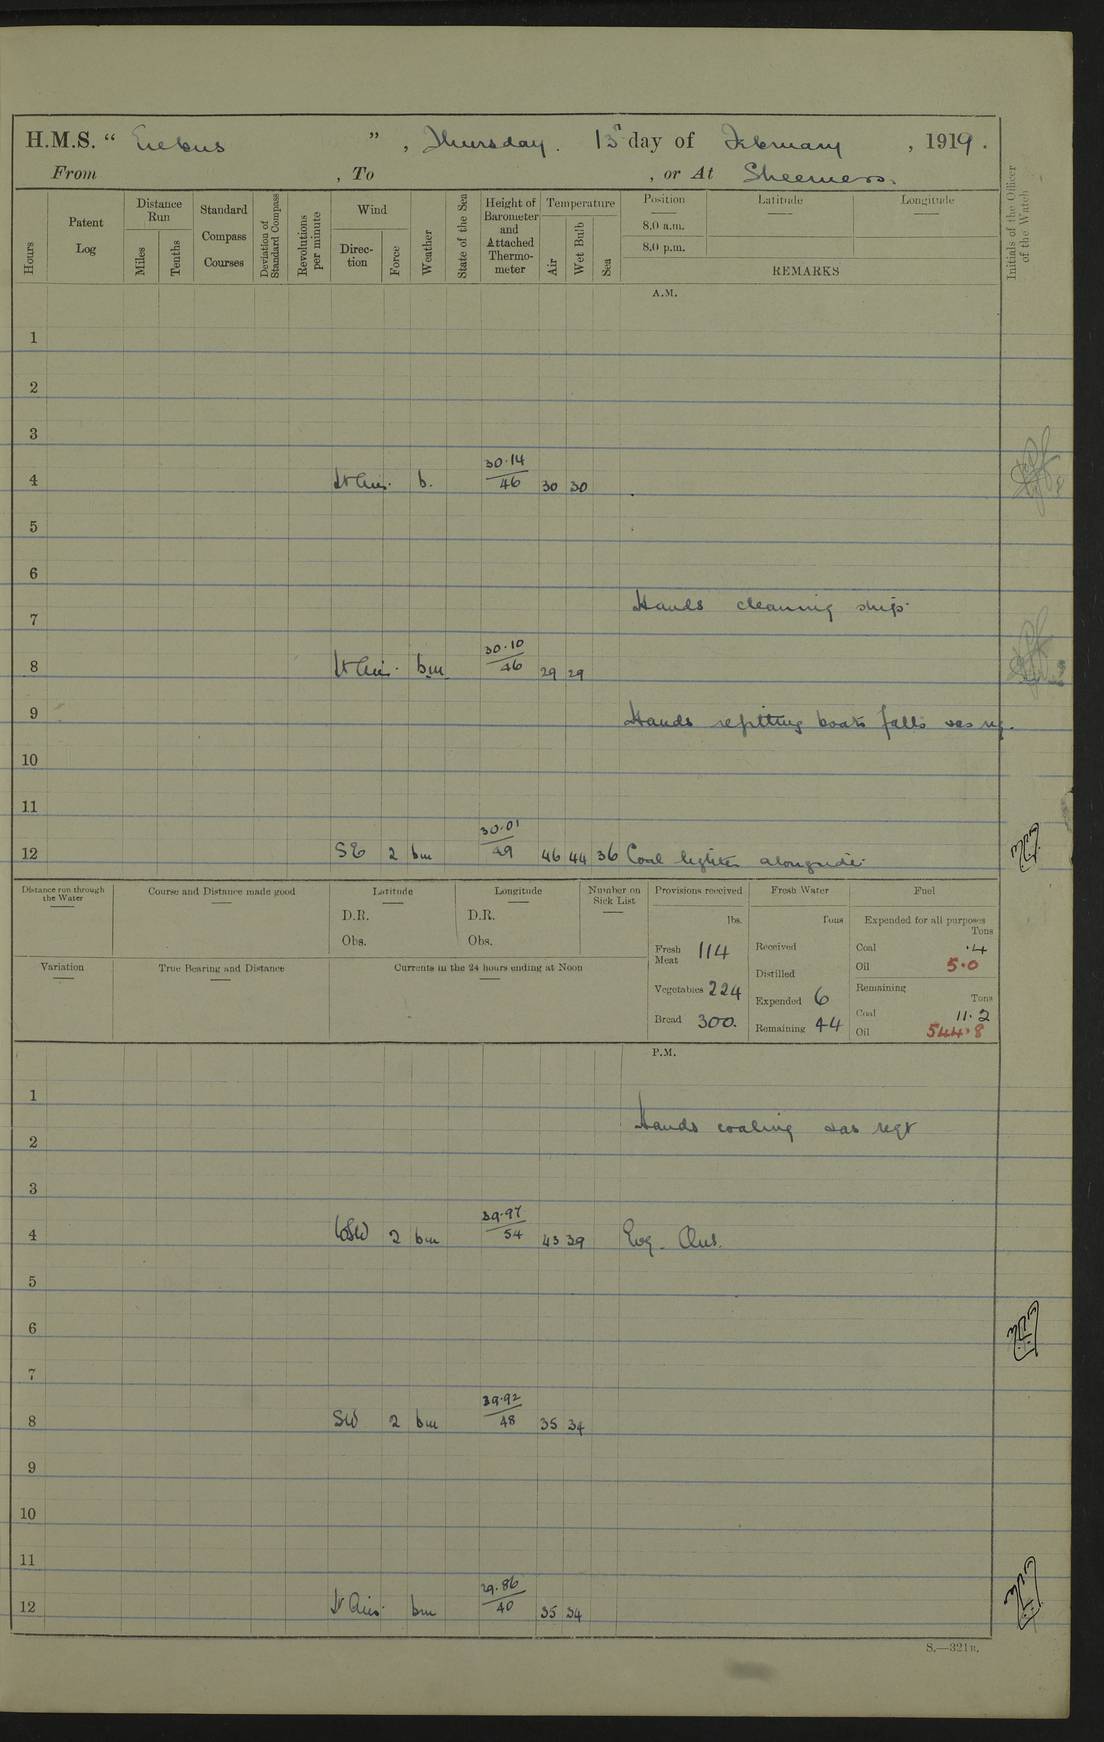 H.M.S. “ Erebus ” , Thursday. 13th day of February , 1919 .
From , To , or At Sheerness.
Hours
Patent Log
Distance Run
Miles
Tenths
Standard Compass Courses
Deviation of Standard Compass
Revolutions per minute
Wind
Direction
Force
Weather
State of the Sea
Height of Barometer and Attached Thermometer
Temperature
Air
Wet Bulb
Sea
Position
8.0 a.m.
8.0 p.m.
Latitude
Longitude
REMARKS
Initials of the Officer of the Watch
A.M.
1
2
3
4 Lt Airs. b. 30.14 / 46 30 30
5
6
Hands cleaning ship.
7
8 Lt Airs. bm 30.10 / 46 29 29
9 Hands refitting boats falls &as req.
10
11
12 SE 2 bm 30.01 / 49 46 44 36 Coal lighter alongside.
Distance run through the Water
Course and Distance made good
Latitude
D.R.
Obs.
Longitude
D.R.
Obs.
Number on Sick List
Variation
True Bearing and Distance
Currents in the 24 hours ending at Noon
Provisions received
lbs.
Fresh Meat 114
Vegetables 224
Bread 300.
Fresh Water
Tons
Received
Distilled
Expended 6
Remaining 44
Fuel
Expended for all purposes
Tons
Coal .4
Oil 5.0
Remaining
Tons
Coal 11.2
Oil 544.8
P.M.
1
Hands coaling &as reqt
2
3
4 WSW 2 bm 39.97 / 54 43 39 Evg. Qrs.
5
6
7
8 SW 2 bm 39.92 / 48 35 34
9
10
11
12 Lt Airs. bm 29.86 / 40 35 34
S.—321B.